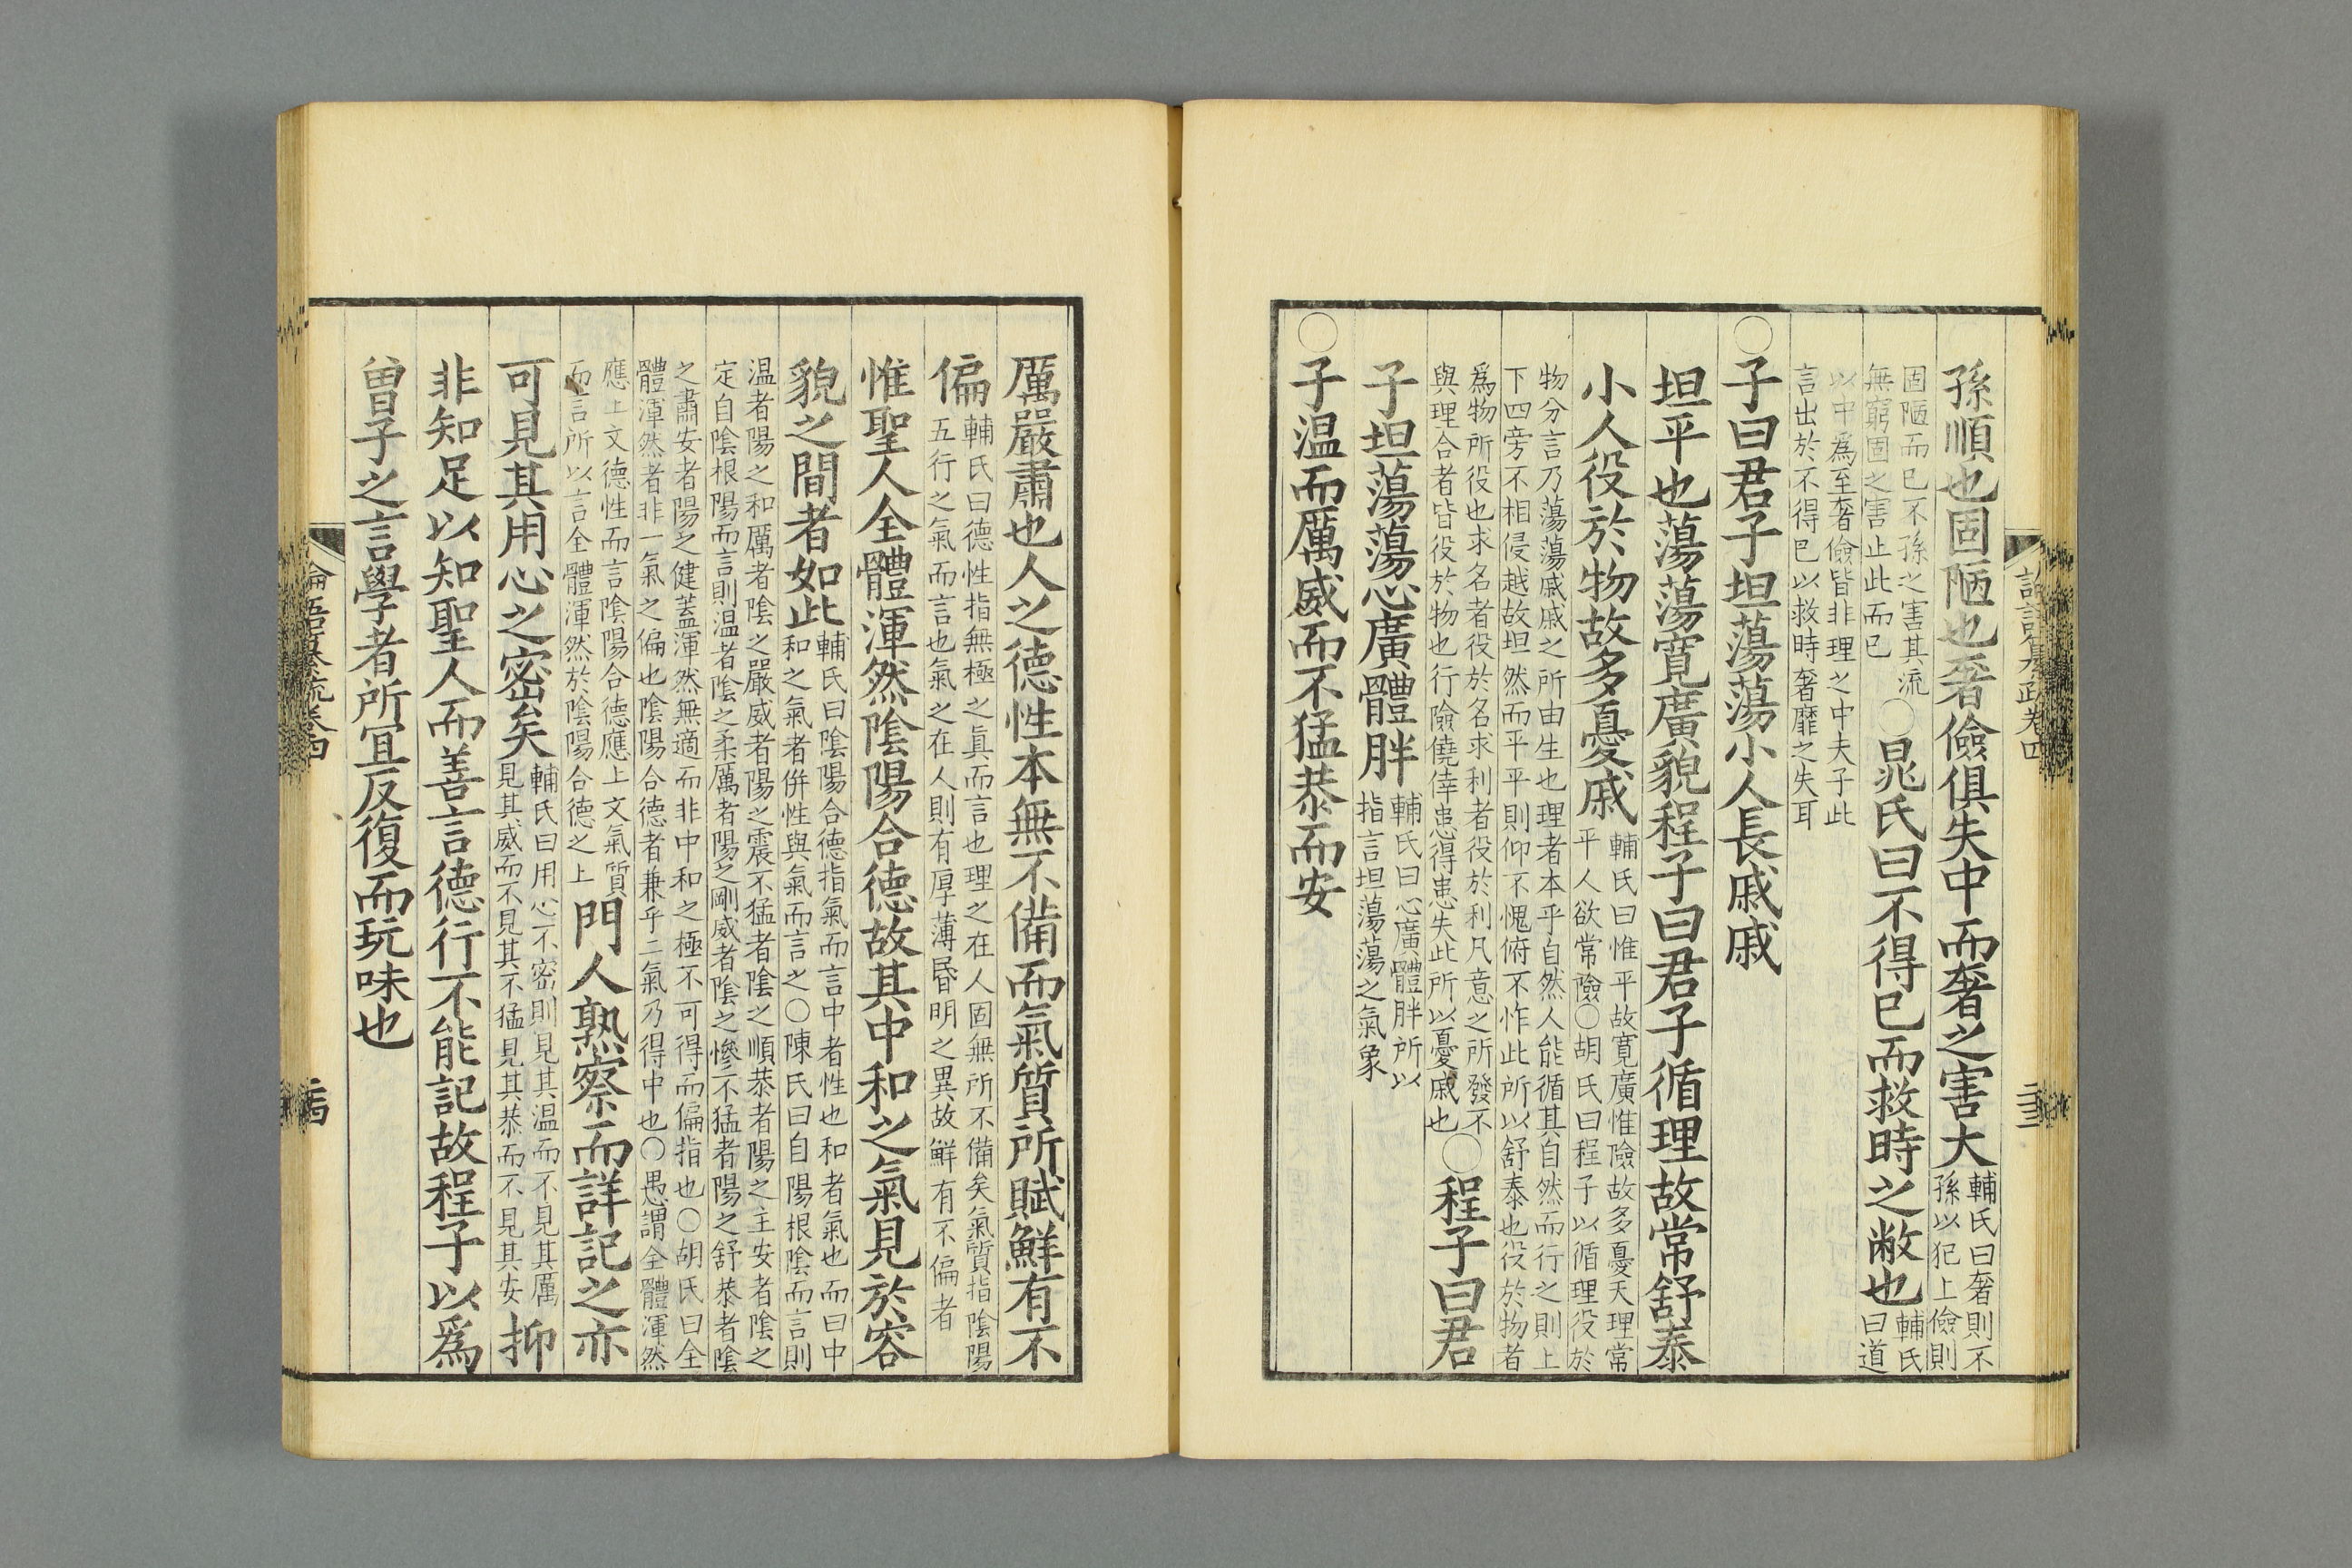 孫順也固陋也奢儉俱失中而奢之害大輔氏曰奢則不孫以犯上儉則
固陋而已不孫之害其流無窮固之害止此而已○晁氏曰不得已而救時之敝也輔氏曰道
以中爲至奢儉皆非理之中夫子此言出於不得已以救時奢靡之失耳
○子曰君子坦蕩蕩小人長戚戚
坦平也蕩蕩寬廣貌程子曰君子循理故常舒泰
小人役於物故多憂戚輔氏曰惟平故寛廣惟險故多憂天理常平人欲常險○胡氏曰程子以循理役於
物分言乃蕩蕩戚戚之所由生也理者本乎自然人能循其自然而行之則上下四旁不相侵越故坦然而平平則仰不愧俯不怍此所以舒泰也役於物者
爲物所役也求名者役於名求利者役於利凡意之所發不與理合者皆役於物也行險僥倖患得患失此所以憂戚也○程子曰君
子坦蕩蕩心廣體胖輔氏曰心廣體胖所以指言坦蕩蕩之氣象
○子温而厲威而不猛恭而安
厲嚴肅也人之德性本無不備而氣質所賦鮮有不
偏輔氏曰德性指無極之眞而言也理之在人固無所不備矣氣質指陰陽五行之氣而言也氣之在人則有厚薄昬明之異故鮮有不偏者
惟聖人全體渾然陰陽合德故其中和之氣見於容
貌之間者如此輔氏曰陰陽合德指氣而言中者性也和者氣也而曰中和之氣者併性與氣而言之○陳氏曰自陽根陰而言則
温者陽之和厲者陰之嚴威者陽之震不猛者陰之順恭者陽之主安者陰之定自陰根陽而言則温者陰之柔厲者陽之剛威者陰之慘不猛者陽之舒恭者陰
之肅安者陽之健蓋渾然無適而非中和之極不可得而偏指也○胡氏曰全體渾然者非一氣之偏也陰陽合德者兼乎二氣乃得中也○愚謂全體渾然
應上文德性而言陰陽合德應上文氣質而言所以言全體渾然於陰陽合德之上門人熟察而詳記之亦
可見其用心之密矣輔氏曰用心不密則見其温而不見其厲見其威而不見其不猛見其恭而不見其安抑
非知足以知聖人而善言德行不能記故程子以爲
曾子之言學者所宜反復而玩味也
論語纂疏卷四